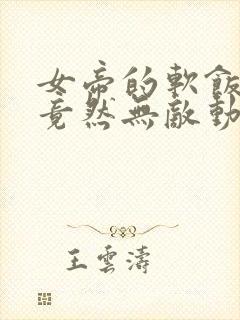 女帝的軟飯
竟然無敵動
王雲濤